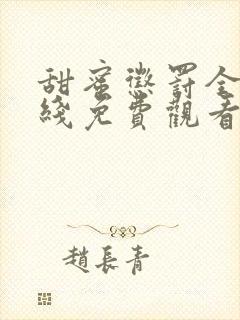 甜蜜懲罰全
綫免費觀看
趙長青